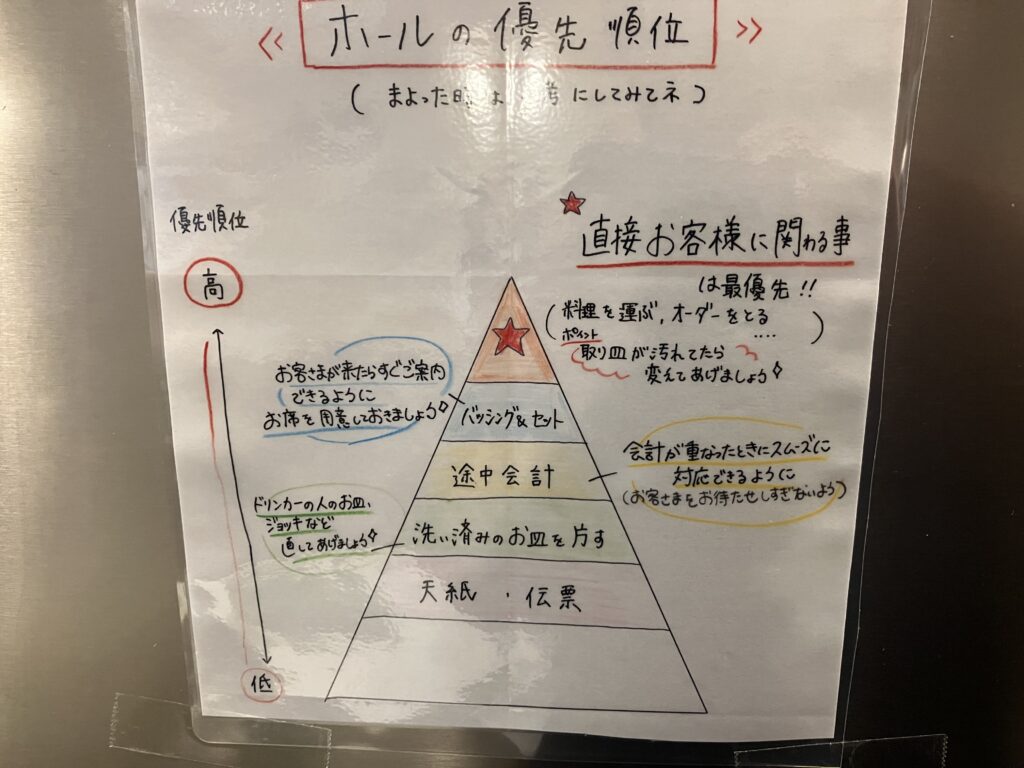 《 ホールの優先順位 》
( まよった時は 考にしてみてネ )
優先順位
高
低
★
直接お客様に関わる事
は最優先!!
( 料理を運ぶ,オーダーをとる ‥‥ )
ポイント
取り皿が汚れてたら
変えてあげましょう
★
お客さまが来たらすぐご案内
できるように
お席を用意しておきましょう
バッシング&セット
途中会計
会計が重なったときにスムーズに
対応できるように
(お客さまをお待たせしすぎないよう)
ドリンカーの人のお皿、
ジョッキなど
直してあげましょう
洗い済みのお皿を片す
天紙 ・ 伝票